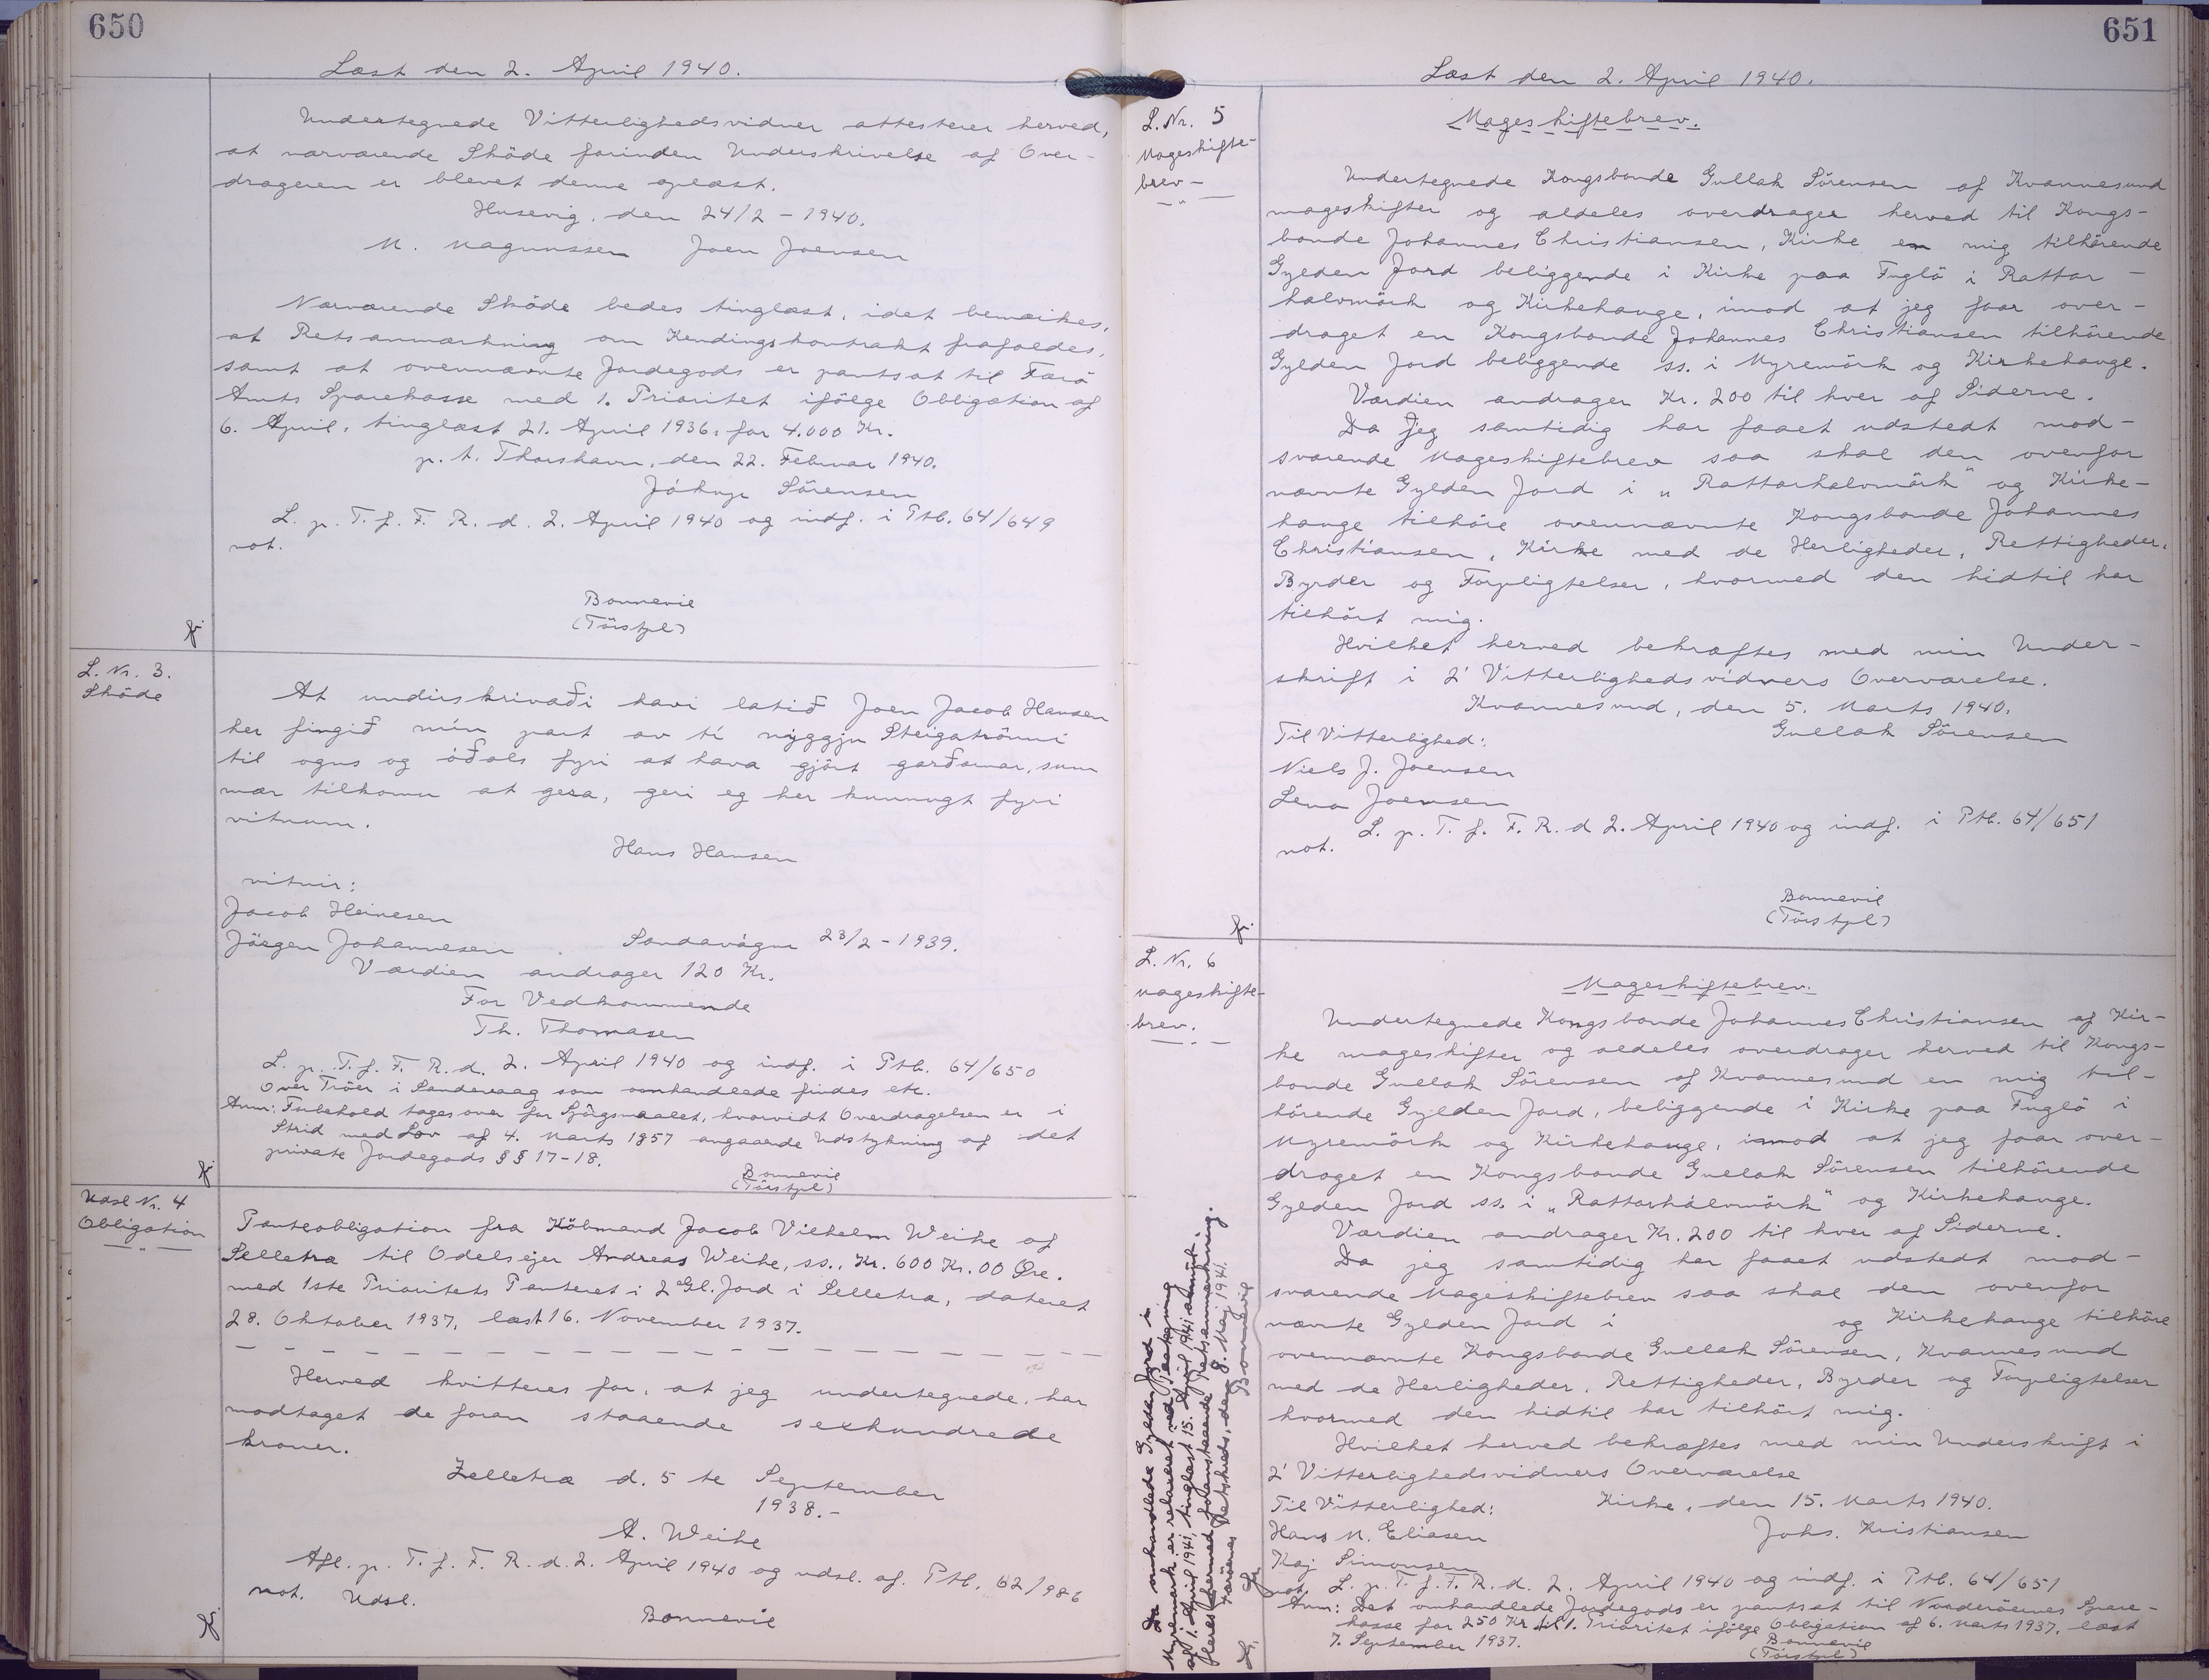 650
Læst den 2. April 1940.
Undertegnede Vitterlighedsvidner attesterer herved,
at nærværende Sköde forinden Underskrivelse af Over-
drageren er blevet denne oplæst.
Husevig, den 24/2 - 1940.
M. Magnussen Joen Joensen
Nærværende Sköde bedes tinglæst, idet bemærkes,
at Retsanmærkning om Kendingskontrakt frafaldes,
samt at ovennævnte Jordegods er pantsat til Færö
Amts Sparekasse med 1. Prioritet ifölge Obligation af
6. April, tinglæst 21. April 1936, for 4.000 Kr.
p. t. Thorshavn, den 22. Februar 1940.
Jákup Sörensen
L. p. T. f. F. R. d. 2. April 1940 og indf. i Ptb. 64/649
not.
Bonnevie
(Törstpl)
L. Nr. 3.
Sköde
At undirskrivaði havi latið Joen Jacob Hansen
her fingið mín part av tí nýggju Steigatrönni
til ogns og óðals fyri at hava gjört garðarnar, sum
mær tilkomu at gera, geri eg her kunnugt fyri
vitnum.
Hans Hansen
vitnir:
Jacob Heinesen
Jörgen Johannesen . Sandavágur 23/2 - 1939.
Værdien andrager 120 Kr.
For Vedkommende
Th. Thomasen
L. p. T. f. F. R. d. 2. April 1940 og indf. i Ptb. 64/650
Over Tröer i Sandevaag som omhandlede findes etc.
Anm: Forbehold tages over for Spörgsmaalet, hvorvidt Overdragelsen er i
Strid med Lov af 4. Marts 1857 angaaende Udstykning af det
private Jordegods §§ 17-18.
Bonnevie
(Törstpl)
Udsl Nr. 4
Obligation
Panteobligation fra Köbmand Jacob Vilhelm Weihe af
Selletræ til Odelsejer Andreas Weihe, ss., Kr. 600 Kr. 00 Øre.
med 1ste Prioritets Panteret i 2 Gl. Jord i Selletræ, dateret
28. Oktober 1937, læst 16. November 1937.
Herved kvitteres for, at jeg undertegnede, har
modtaget de foran staaende sexhundrede
kroner.
Zelletræ d. 5 te September
1938.-
A. Weihe
Afl. p. T. f. F. R. d. 2. April 1940 og udsl. af. Ptb. 62/986
not. Udsl.
Bonnevie
651
Læst den 2. April 1940.
L. Nr. 5
Mageskifte-
brev-
Mageskiftebrev.
Undertegnede Kongsbonde Gullak Sörensen af Kvannesund
mageskifter og aldeles overdrager herved til Kongs-
bonde Johannes Christiansen, Kirke en mig tilhörende
Gylden Jord beliggende i Kirke paa Fuglö i Rattar-
halvmörk og Kirkehauge, imod at jeg faar over-
draget en Kongsbonde Johannes Christiansen tilhörende
Gylden Jord beliggende ss. i Myremörk og Kirkehauge.
Værdien andrager Kr. 200 til hver af Siderne.
Da jeg samtidig har faaet udstedt mod-
svarende Mageskiftebrev saa skal den ovenfor
nævnte Gylden Jord i „Rattarhalvmörk" og Kirke-
hauge tilhöre ovennævnte Kongsbonde Johannes
Christiansen, Kirke med de Herligheder, Rettigheder,
Byrder og Forpligtelser, hvormed den hidtil har
tilhört mig.
Hvilket herved bekræftes med min Under-
skrift i 2' Vitterlighedsvidners Overværelse.
Kvannesund, den 5. Marts 1940.
Til Vitterlighed: Gullak Sörensen
Niels J. Joensen
Lena Joensen
L. p. T. f. F. R. d 2. April 1940 og indf. i Ptb. 64/651
not.
Bonnevie
(Törstpl)
L. Nr. 6
Mageskifte-
brev.
Mageskiftebrev.
Undertegnede Kongsbonde Johannes Christiansen af Kir-
ke mageskifter og aldeles overdrager herved til Kongs-
bonde Gullak Sörensen af Kvannesund en mig til-
hörende Gylden Jord, beliggende i Kirke paa Fuglö i
Myremörk og Kirkehauge, imod at jeg faar over-
draget en Kongsbonde Gullak Sörensen tilhörende
Gylden Jord ss. i „Rattarhálvmörk" og Kirkehauge.
Værdien andrager Kr. 200 til hver af Siderne.
Da jeg samtidig har faaet udstedt mod-
svarende Mageskiftebrev saa skal den ovenfor
nævnte Gylden Jord i og Kirkehauge tilhöre
ovennævnte Kongsbonde Gullak Sörensen, Kvannesund
med de Herligheder, Rettigheder, Byrder og Forpligtelser
hvormed den hidtil har tilhört mig.
Hvilket herved bekræftes med min Underskrift i
2' Vitterlighedsvidners Overværelse
Til Vitterlighed: Kirke, den 15. Marts 1940.
Hans M. Eliasen Johs. Kristiansen
Kaj Simonsen
not. L. p. T. f. F. R. d. 2. April 1940 og indf. i Ptb. 64/651
Anm: Det omhandlede Jordegods er pantsat til Norderöernes Spare-
kasse for 250 Kr. til 1. Prioritet ifölge Obligation af 6. Marts 1937, læst
7. September 1937.
Bonnevie
(Törstpl)
Da omhandlede Gylden Jord i
Myremørk er relaxeret ved Paategning
af 1. April 1941, tinglæst 15. April 1941, annul-
leres hermed foranstaaende Retsanmærkning.
Færøernes Retskreds, den 8. Maj 1941.
Bonnevie